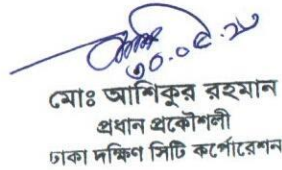 ৩০.০৫.২৩
মোঃ আশিকুর রহমান
প্রধান প্রকৌশলী
ঢাকা দক্ষিণ সিটি কর্পোরেশন